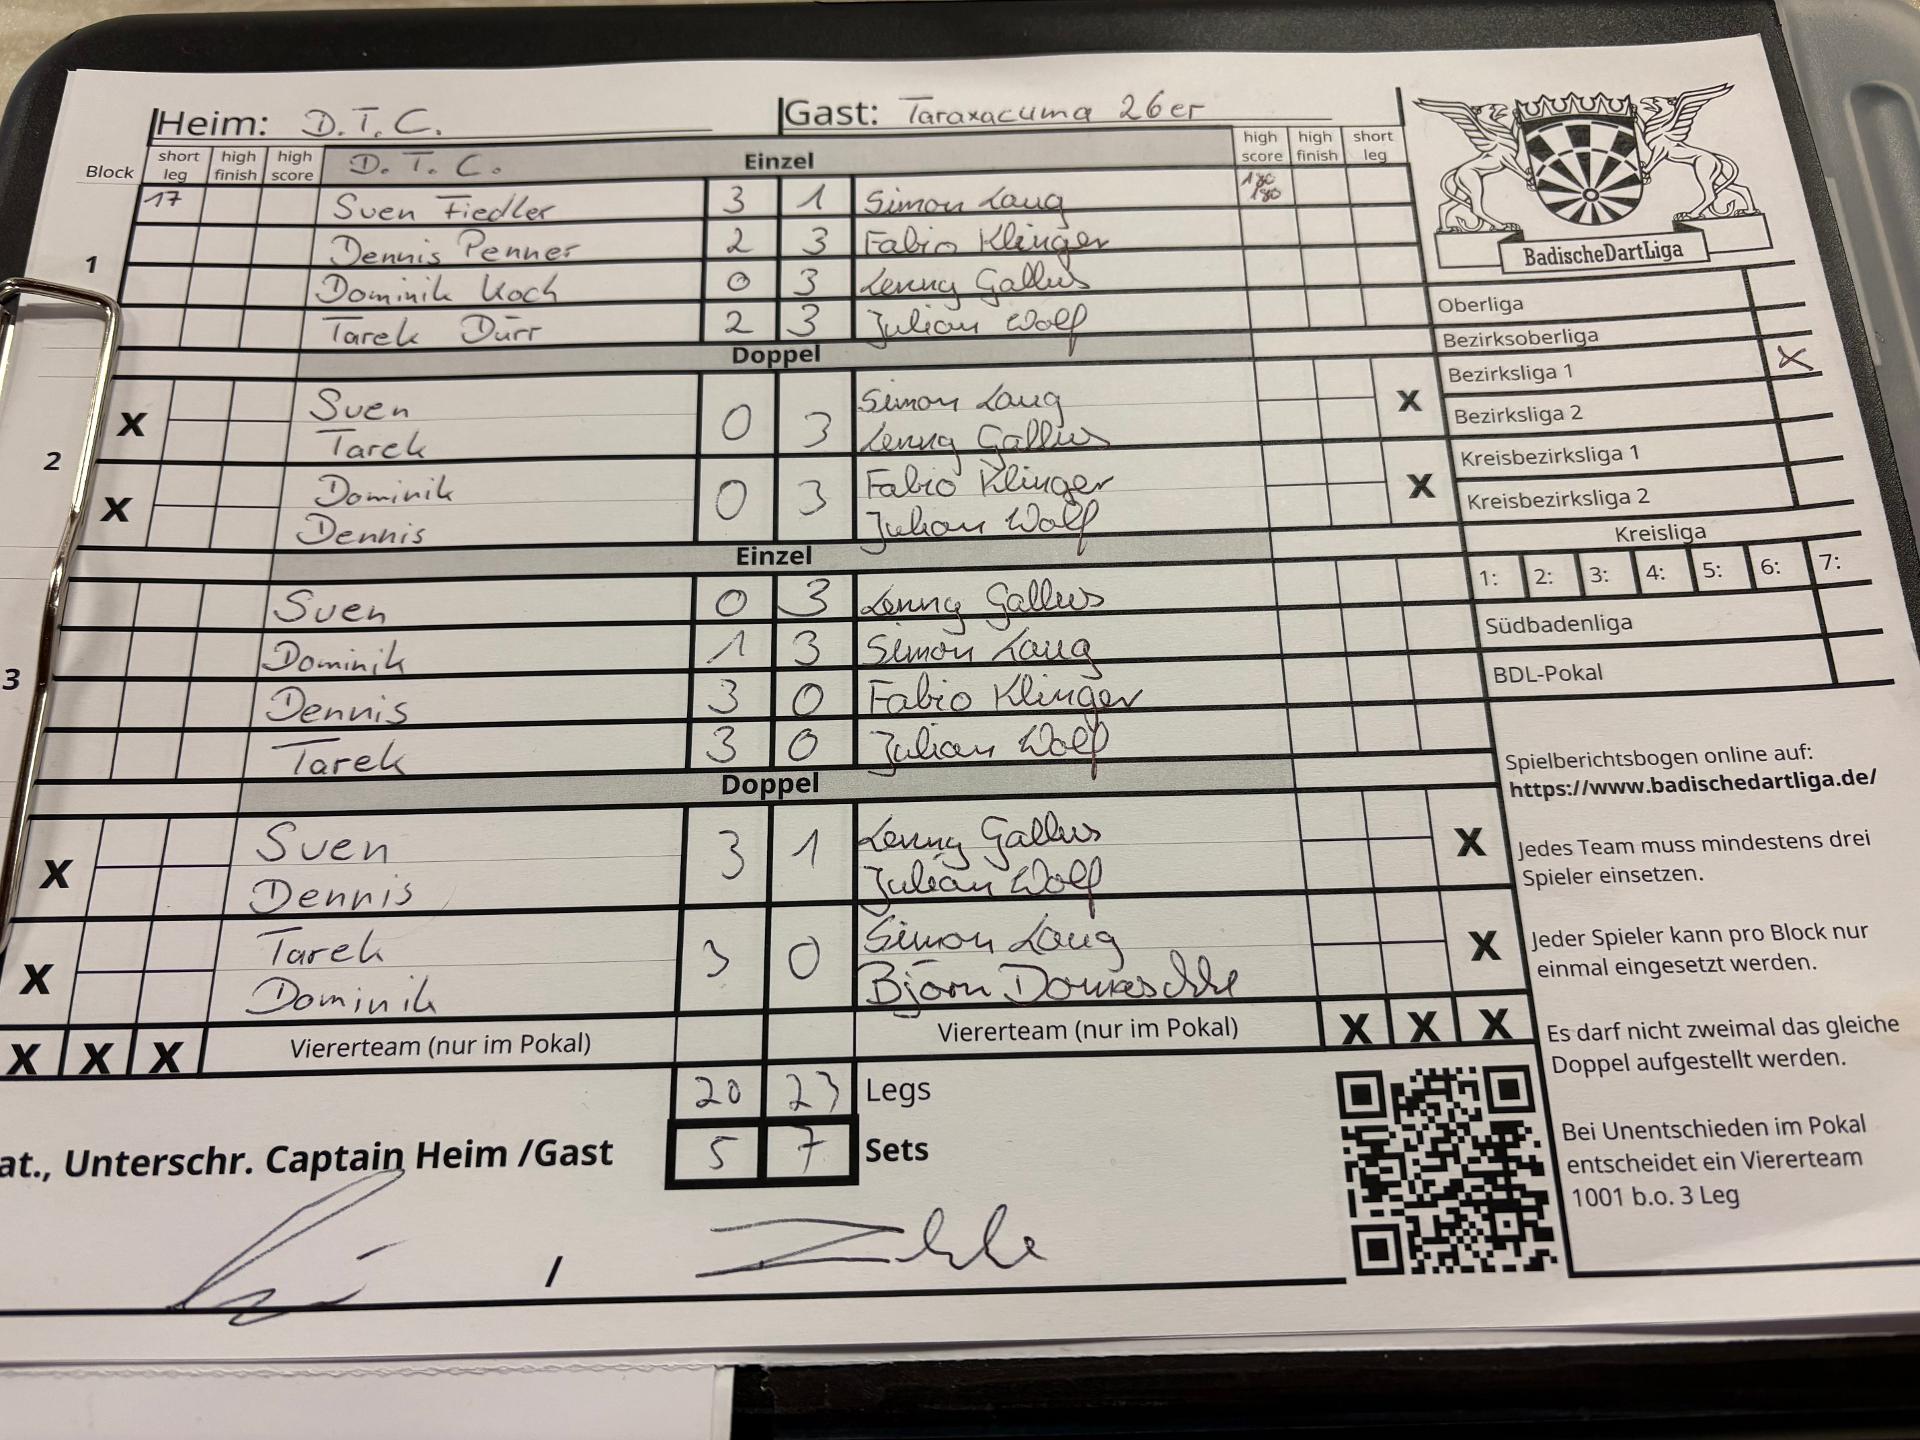 Heim: D.T.C. Gast: Taraxacuma 26er
Block short leg high finish high score D.T.C. Einzel high score high finish short leg
1
17 Sven Fiedler 3 1 Simon Laug 180 180
Dennis Penner 2 3 Fabio Klinger
Dominik Koch 0 3 Lenny Gallus
Tarek Dürr 2 3 Julian Wolf
Doppel
2
X Sven 0 3 Simon Laug X
Tarek Lenny Gallus
X Dominik 0 3 Fabio Klinger X
Dennis Julian Wolf
Einzel
3
Sven 0 3 Lenny Gallus
Dominik 1 3 Simon Laug
Dennis 3 0 Fabio Klinger
Tarek 3 0 Julian Wolf
Doppel
X Sven 3 1 Lenny Gallus X
Dennis Julian Wolf
X Tarek 3 0 Simon Laug X
Dominik Björn
X X X Viererteam (nur im Pokal) Viererteam (nur im Pokal) X X X
20 23 Legs
at., Unterschr. Captain Heim /Gast 5 7 Sets
/
BadischeDartLiga
Oberliga
Bezirksoberliga
Bezirksliga 1 X
Bezirksliga 2
Kreisbezirksliga 1
Kreisbezirksliga 2
Kreisliga
1: 2: 3: 4: 5: 6: 7:
Südbadenliga
BDL-Pokal
Spielberichtsbogen online auf:
https://www.badischedartliga.de/
Jedes Team muss mindestens drei
Spieler einsetzen.
Jeder Spieler kann pro Block nur
einmal eingesetzt werden.
Es darf nicht zweimal das gleiche
Doppel aufgestellt werden.
Bei Unentschieden im Pokal
entscheidet ein Viererteam
1001 b.o. 3 Leg